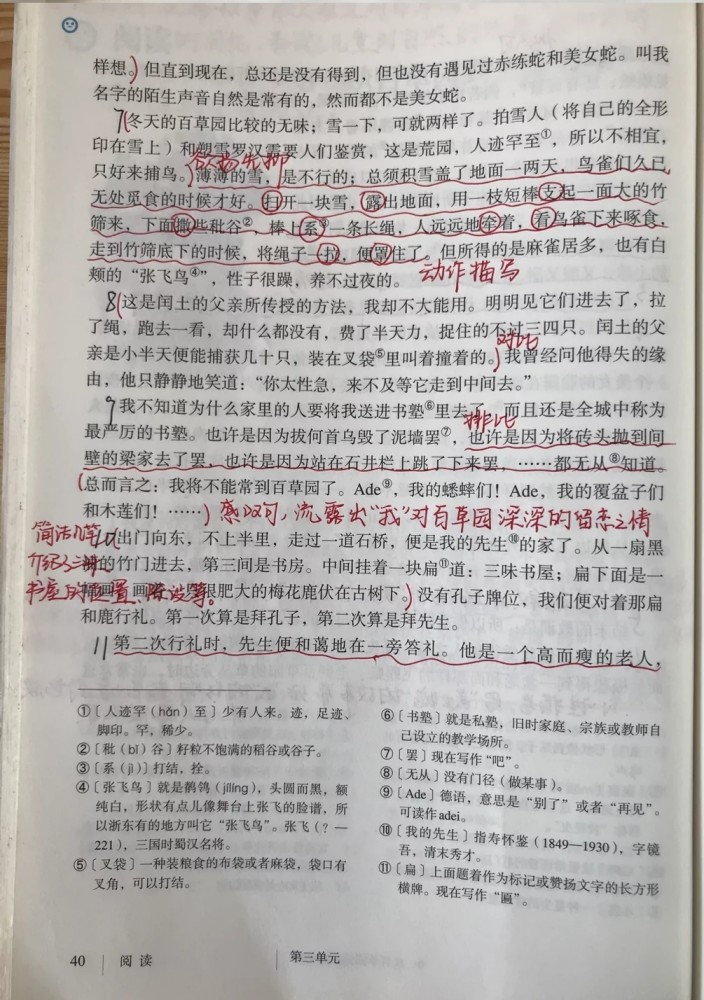 样想。)但直到现在，总还是没有得到，但也没有遇见过赤练蛇和美女蛇。叫我
名字的陌生声音自然是常有的，然而都不是美女蛇。
7(冬天的百草园比较的无味；雪一下，可就两样了。拍雪人（将自己的全形
印在雪上）和塑雪罗汉需要人们鉴赏，这是荒园，人迹罕至①，所以不相宜，
欲扬先抑
只好来捕鸟。)薄薄的雪，是不行的；总须积雪盖了地面一两天，鸟雀们久已
无处觅食的时候才好。扫开一块雪，露出地面，用一枝短棒支起一面大的竹
筛来，下面撒些秕谷②，棒上系③一条长绳，人远远地牵着，看鸟雀下来啄食，
走到竹筛底下的时候，将绳子一拉，便罩住了。但所得的是麻雀居多，也有白
颊的“张飞鸟④”，性子很躁，养不过夜的。
动作描写
8(这是闰土的父亲所传授的方法，我却不大能用。明明见它们进去了，拉
了绳，跑去一看，却什么都没有，费了半天力，捉住的不过三四只。闰土的父
对比
亲是小半天便能捕获几十只，装在叉袋⑤里叫着撞着的。)我曾经问他得失的缘
由，他只静静地笑道：“你太性急，来不及等它走到中间去。”
9我不知道为什么家里的人要将我送进书塾⑥里去了，而且还是全城中称为
排比
最严厉的书塾。也许是因为拔何首乌毁了泥墙罢⑦，也许是因为将砖头抛到间
壁的梁家去了罢，也许是因为站在石井栏上跳了下来罢，……都无从⑧知道。
(总而言之：我将不能常到百草园了。Ade⑨，我的蟋蟀们！Ade，我的覆盆子们
和木莲们！……)
感叹句，流露出“我”对百草园深深的留恋之情
简洁几笔
10出门向东，不上半里，走过一道石桥，便是我的先生⑩的家了。从一扇黑
介绍三味
的竹门进去，第三间是书房。中间挂着一块扁⑪道：三味书屋；扁下面是一
书屋的位置、陈设等。
画，画着一只很肥大的梅花鹿伏在古树下。)没有孔子牌位，我们便对着那扁
和鹿行礼。第一次算是拜孔子，第二次算是拜先生。
11第二次行礼时，先生便和蔼地在一旁答礼。他是一个高而瘦的老人，
①〔人迹罕（hǎn）至〕少有人来。迹，足迹、
脚印。罕，稀少。
②〔秕（bǐ）谷〕籽粒不饱满的稻谷或谷子。
③〔系（jì）〕打结，拴。
④〔张飞鸟〕就是鹡鸰（jílíng），头圆而黑，额
纯白，形状有点儿像舞台上张飞的脸谱，所
以浙东有的地方叫它“张飞鸟”。张飞（？—
221），三国时蜀汉名将。
⑤〔叉袋〕一种装粮食的布袋或者麻袋，袋口有
叉角，可以打结。
⑥〔书塾〕就是私塾，旧时家庭、宗族或教师自
己设立的教学场所。
⑦〔罢〕现在写作“吧”。
⑧〔无从〕没有门径（做某事）。
⑨〔Ade〕德语，意思是“别了”或者“再见”。
可读作adei。
⑩〔我的先生〕指寿怀鉴（1849—1930），字镜
吾，清末秀才。
⑪〔扁〕上面题着作为标记或赞扬文字的长方形
横牌。现在写作“匾”。
40 阅读 第三单元